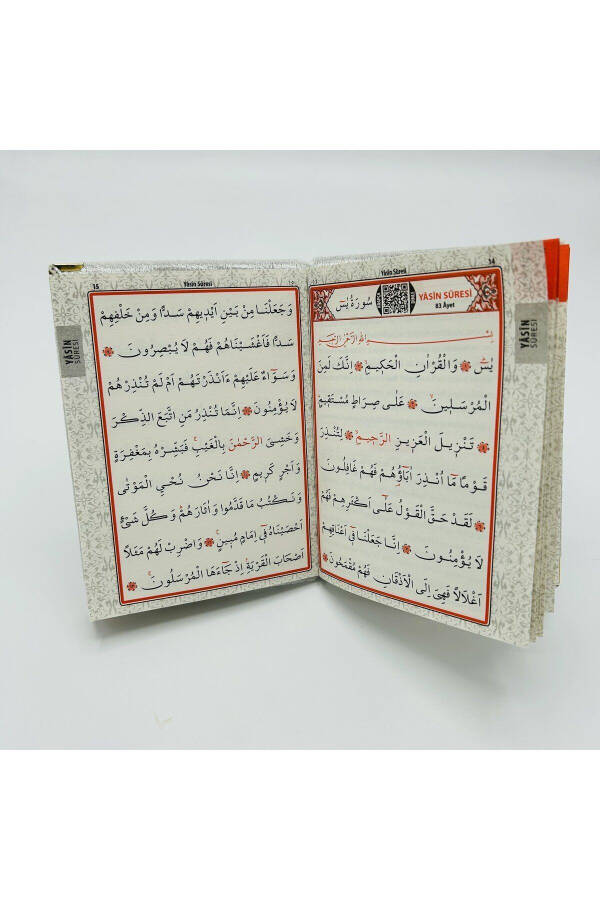 14
Yâsin Sûresi
سُورَةُ يٰسٓ
YÂSİN SÛRESİ
83 Âyet
بِسْمِ اللّٰهِ الرَّحْمٰنِ الرَّحِيمِ
يٰسٓ وَالْقُرْاٰنِ الْحَكِيمِ اِنَّكَ لَمِنَ
الْمُرْسَلِينَ عَلٰى صِرَاطٍ مُسْتَقِيمٍ
تَنْزِيلَ الْعَزِيزِ الرَّحِيمِ لِتُنْذِرَ
قَوْمًا مَٓا اُنْذِرَ اٰبَٓاؤُهُمْ فَهُمْ غَافِلُونَ
لَقَدْ حَقَّ الْقَوْلُ عَلٰٓى اَكْثَرِهِمْ فَهُمْ
لَا يُؤْمِنُونَ اِنَّا جَعَلْنَا فِٓى اَعْنَاقِهِمْ
اَغْلَالًا فَهِىَ اِلَى الْاَذْقَانِ فَهُمْ مُقْمَحُونَ
YÂSİN
SÛRESİ
15
Yâsin Sûresi
وَجَعَلْنَا مِنْ بَيْنِ اَيْدِيهِمْ سَدًّا وَمِنْ خَلْفِهِمْ
سَدًّا فَاَغْشَيْنَاهُمْ فَهُمْ لَا يُبْصِرُونَ
وَسَوَٓاءٌ عَلَيْهِمْ ءَاَنْذَرْتَهُمْ اَمْ لَمْ تُنْذِرْهُمْ
لَا يُؤْمِنُونَ اِنَّمَا تُنْذِرُ مَنِ اتَّبَعَ الذِّكْرَ
وَخَشِىَ الرَّحْمٰنَ بِالْغَيْبِ فَبَشِّرْهُ بِمَغْفِرَةٍ
وَاَجْرٍ كَرِيمٍ اِنَّا نَحْنُ نُحْيِ الْمَوْتٰى
وَنَكْتُبُ مَا قَدَّمُوا وَاٰثَارَهُمْ وَكُلَّ شَىْءٍ
اَحْصَيْنَاهُ فِٓى اِمَامٍ مُبِينٍ وَاضْرِبْ لَهُمْ مَثَلًا
اَصْحَابَ الْقَرْيَةِ اِذْ جَٓاءَهَا الْمُرْسَلُونَ
YÂSİN
SÛRESİ